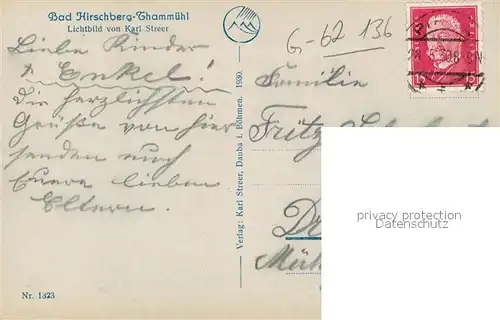 Bad Hirschberg-Thammühl
Lichtbild von Karl Streer
Liebe Kinder
+ Enkel!
Die herzlichsten
Grüße von hier
senden euch
Euere lieben
Eltern.
Nr. 1323
Verlag: Karl Streer, Dauba i. Böhmen. 1930.
G-62 136
Familie
Fritz
15 15
privacy protection
Datenschutz